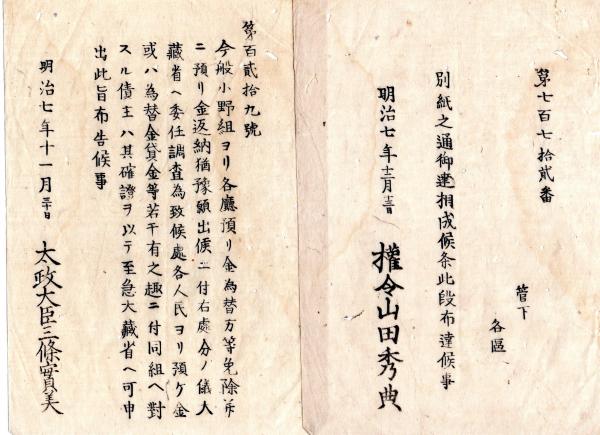 第七百七拾貳番
管下
各區
別紙之通御達相成候条此段布達候事
明治七年十二月
權令山田秀典
第百貳拾九號
今般小野組ヨリ各廳預リ金為替方等免除并
ニ預リ金返納猶豫願出候ニ付右處分ノ儀大
藏省ヘ委任調査為致候處各人民ヨリ預ケ金
或ハ為替金貸金等若干有之趣ニ付同組ヘ對
スル債主ハ其確證ヲ以テ至急大藏省ヘ可申
出此旨布告候事
明治七年十一月三十日
太政大臣三條實美